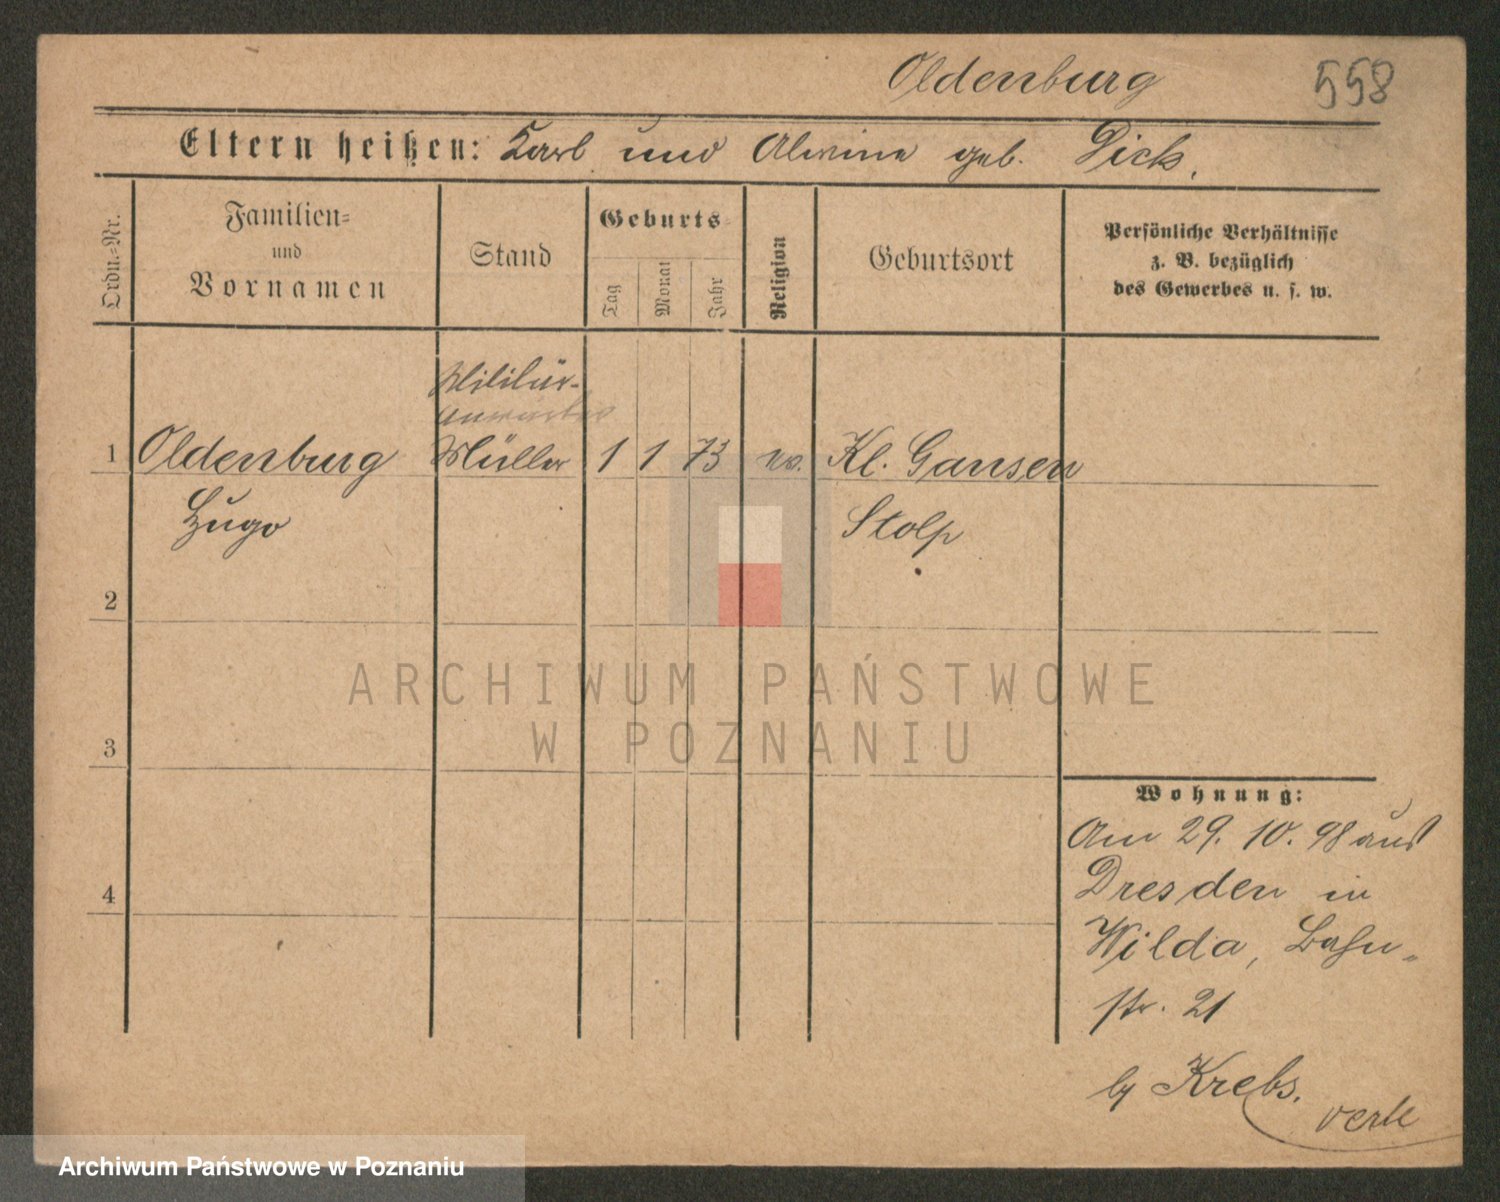 Oldenburg 558
Eltern heißen: Karl und Alwine geb. Dick.
Ordn.-Nr.
Familien-
und
Vornamen
Stand
Geburts-
Tag
Monat
Jahr
Religion
Geburtsort
Persönliche Verhältnisse
z. B. bezüglich
des Gewerbes u. s. w.
Militär-
Anwärter
1 Oldenburg Müller 1 1 73 ev. Kl. Gansen
Hugo Stolp
2
ARCHIWUM PAŃSTWOWE
W POZNANIU
3
Wohnung:
Am 29. 10. 98 aus
Dresden in
4
Wilda, Bahn-
str. 21
by Krebs.
Archiwum Państwowe w Poznaniu